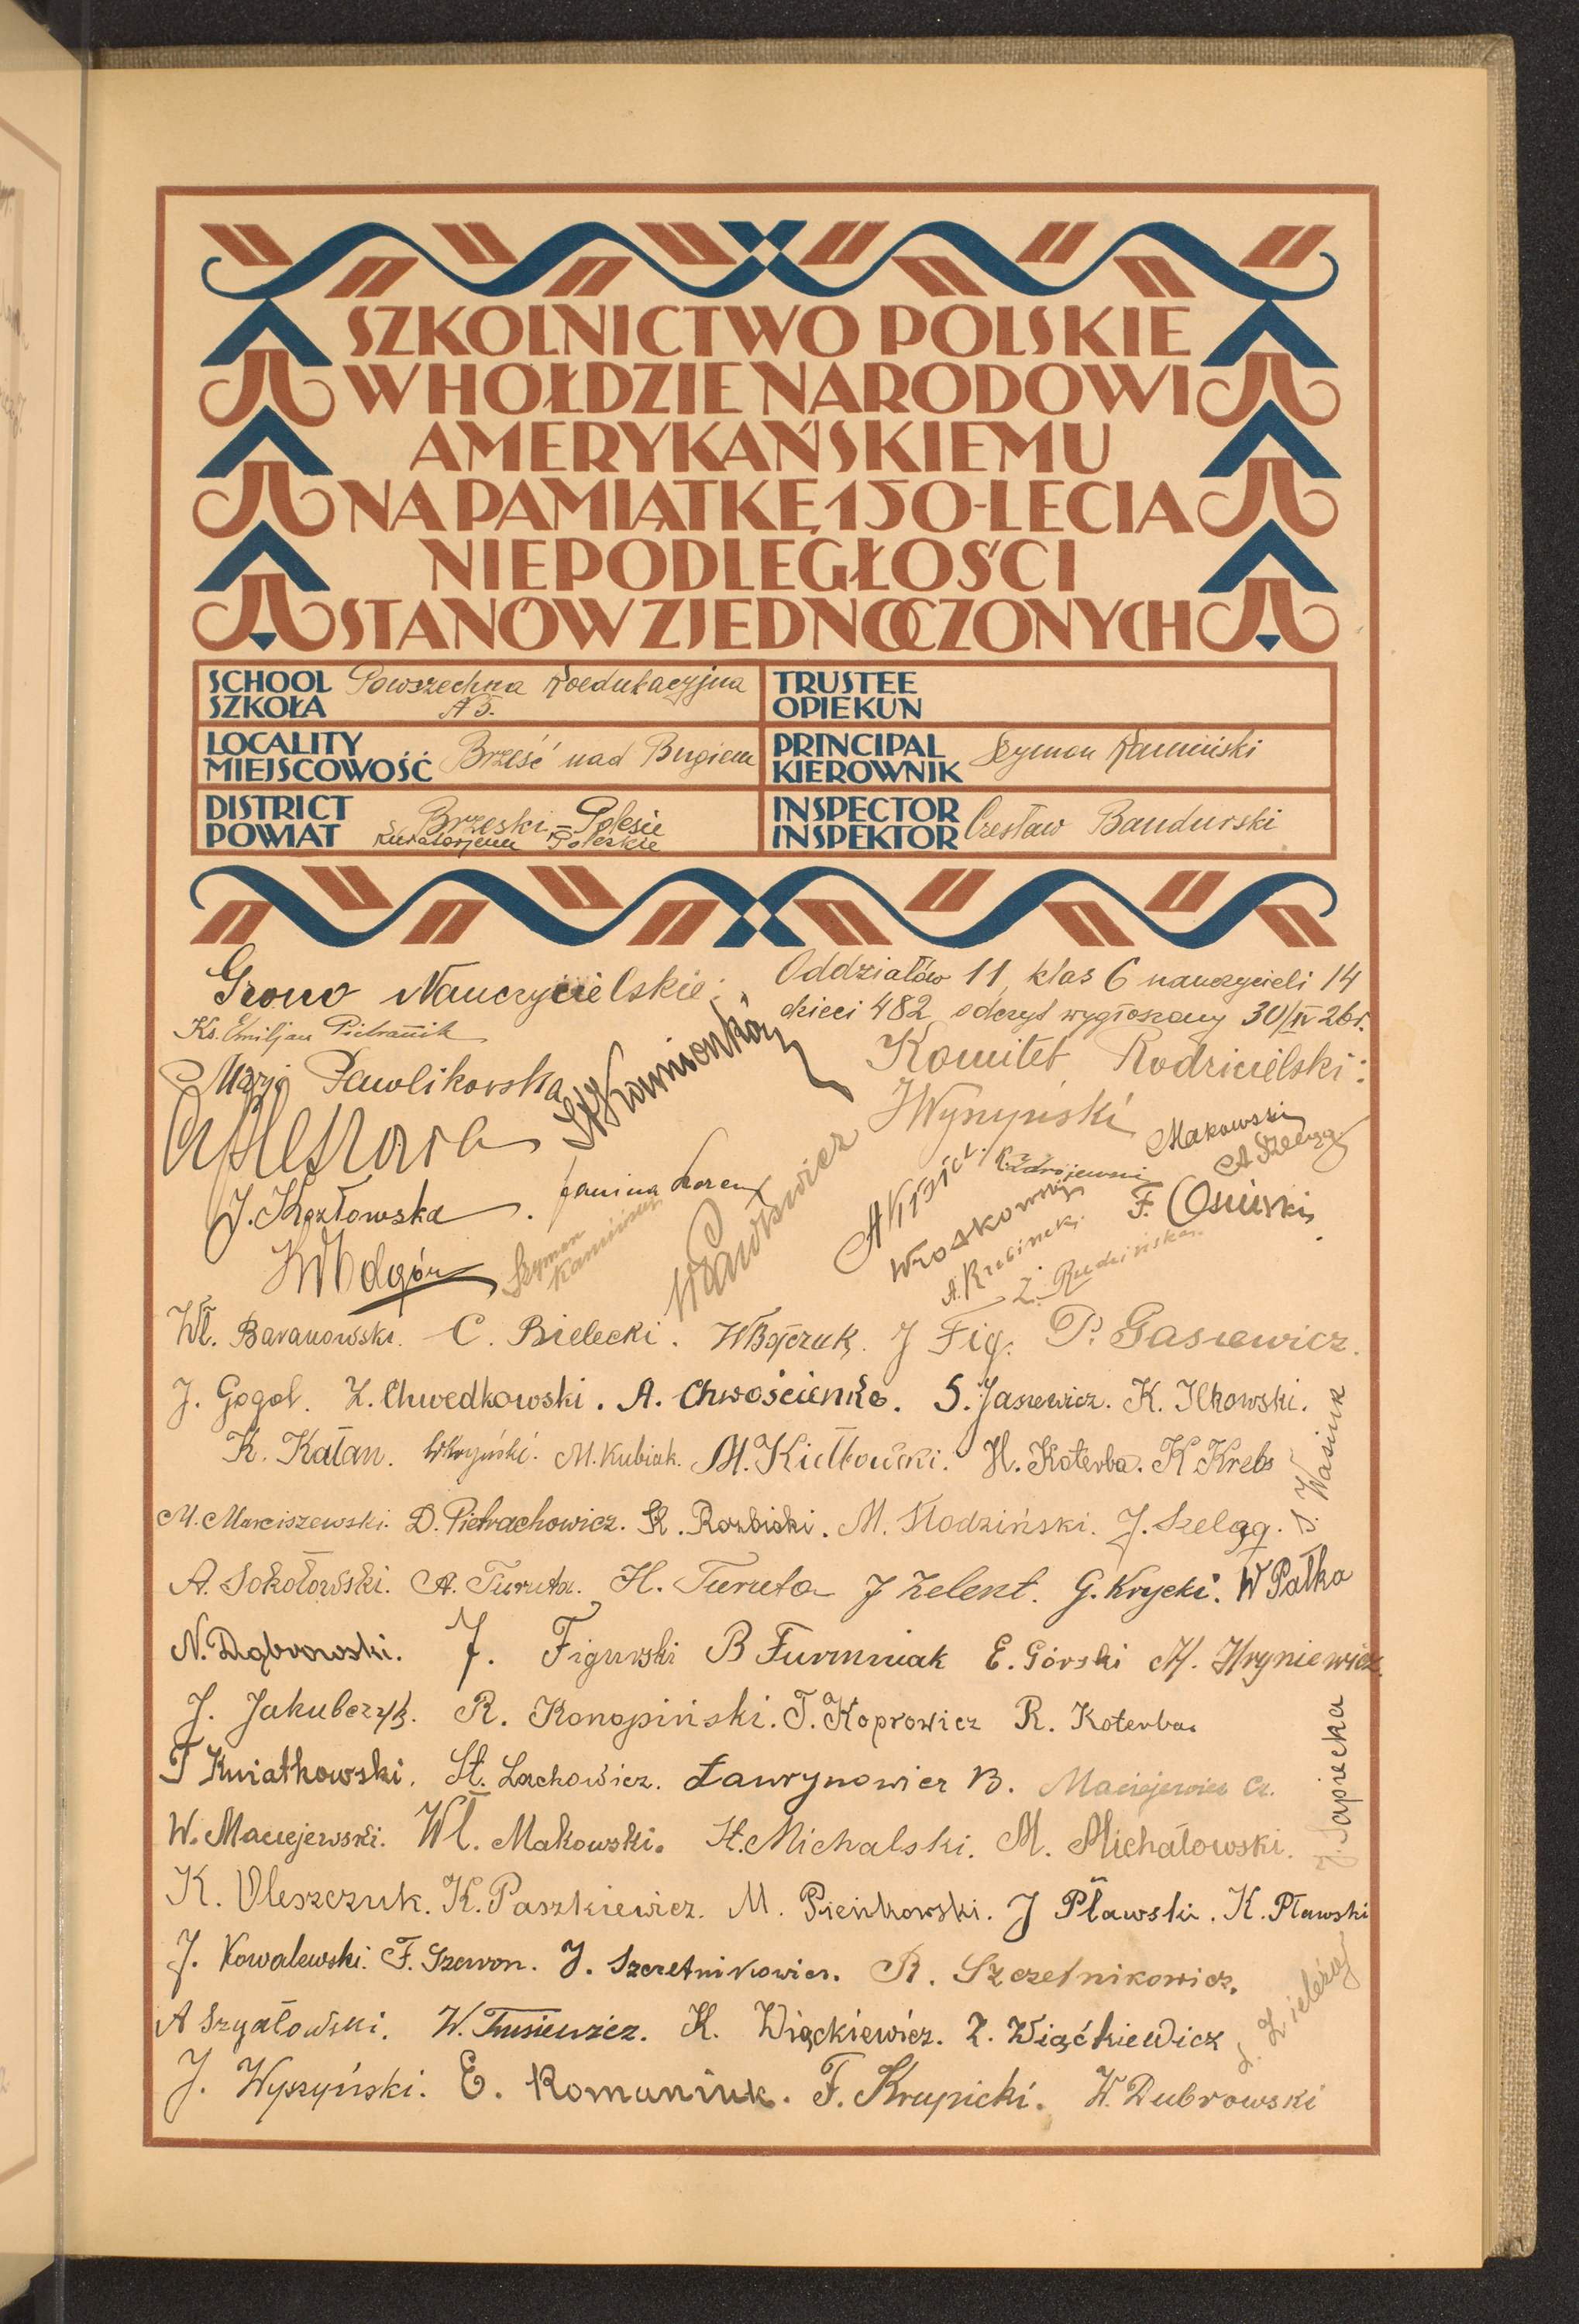 SZKOLNICTWO POLSKIE
W HOŁDZIE NARODOWI
AMERYKAŃSKIEMU
NA PAMIĄTKĘ 150-LECIA
NIEPODLEGŁOŚCI
STANÓW ZJEDNOCZONYCH
SCHOOL SZKOŁA Powszechna Koedukacyjna № 5.
TRUSTEE OPIEKUN
LOCALITY MIEJSCOWOŚĆ Brześć nad Bugiem
PRINCIPAL KIEROWNIK Szymon Kamiński
DISTRICT POWIAT Brzeski - Polesie
Kuratorjum Poleskie
INSPECTOR INSPEKTOR Czesław Bandurski
Grono Nauczycielskie:
Oddziałów 11, klas 6 nauczycieli 14
dzieci 482, odczyt wygłoszony 30/IV 26 r.
Ks. Emiljan Pietranik
Marja Pawlikowska
Komitet Rodzicielski:
Makowski
A Szeląg
J. Kozłowska
Janina
Szymon Kamiński
F. Osiński
Z. Rudzińska
Wł. Baranowski. C. Bielecki. W Bojczuk. J Fig. P. Gasiewicz.
J. Gogol. Z. Chwedkowski. A. Chwościenko. S. Jasiewicz. K. Ilkowski.
K. Katan. M. Kubiak. M. Kiełkowski. H. Koterba. K Krebs
S. Wasiuk
M. Marciszewski. D. Pietrachowicz. K. Rozbicki. M. Słodziński. J. Szeląg.
A. Sokołowski. A. Turuta. H. Turuta J Zelent. G. Krycki. W Pałka
N. Dąbrowski. J. Figurski B Furmniak E. Górski M. Hryniewicz
J. Jakubczyk. R. Konopiński. T. Koprowicz R. Koterba.
T Kwiatkowski. St. Lachowicz. Ławrynowicz B. Maciejewicz Cz.
J. Sapiecha
W. Maciejewski. Wł. Makowski. St. Michalski. M. Michałowski.
K. Oleszczuk. K. Paszkiewicz. M. Pieńkowski. J Pławski. K. Pławski
J. Kowalewski. F. Szewon. J. Szczetnikowicz. R. Szczetnikowicz.
A Szyałowski. W. Tusiewicz. K. Wiąckiewicz. Z. Wiąckiewicz
J. Wyszyński. E. Romaniuk. F. Krupicki. W. Dubrowski